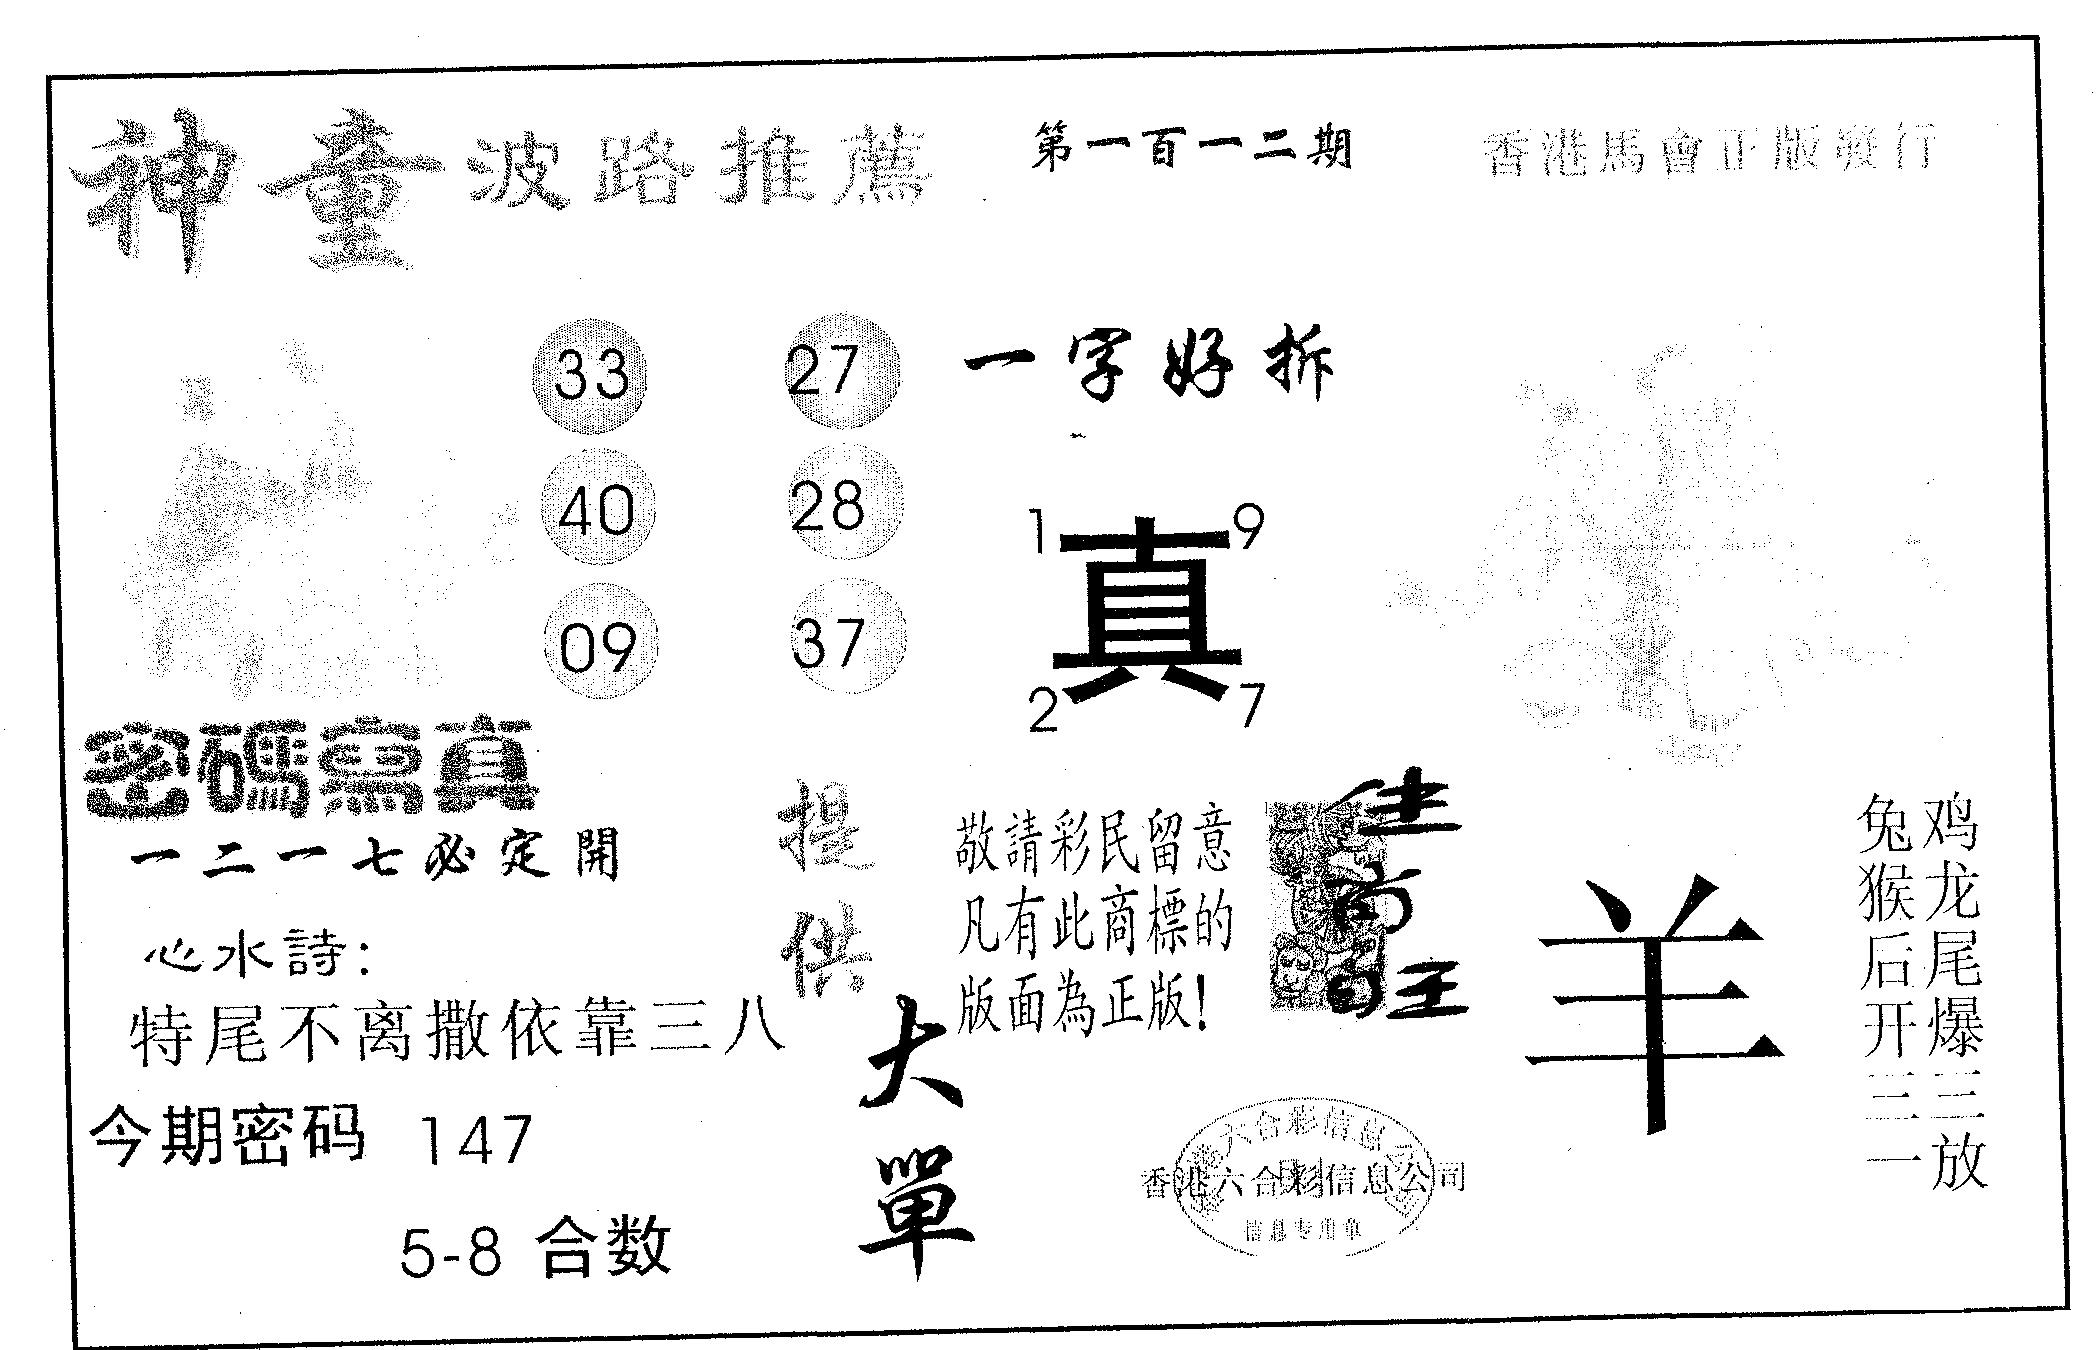 神童波路推薦
第一百一二期
香港馬會正版發行
33 27
40 28
09 37
一字好拆
1 9
真
2 7
密碼寫真
一二一七必定開
心水詩:
特尾不离撒依靠三八
今期密码 147
5-8 合数
提供
大單
敬請彩民留意
凡有此商標的
版面為正版!
羊
鸡龙尾爆三放
兔猴后开三一
香港六合彩信息公司